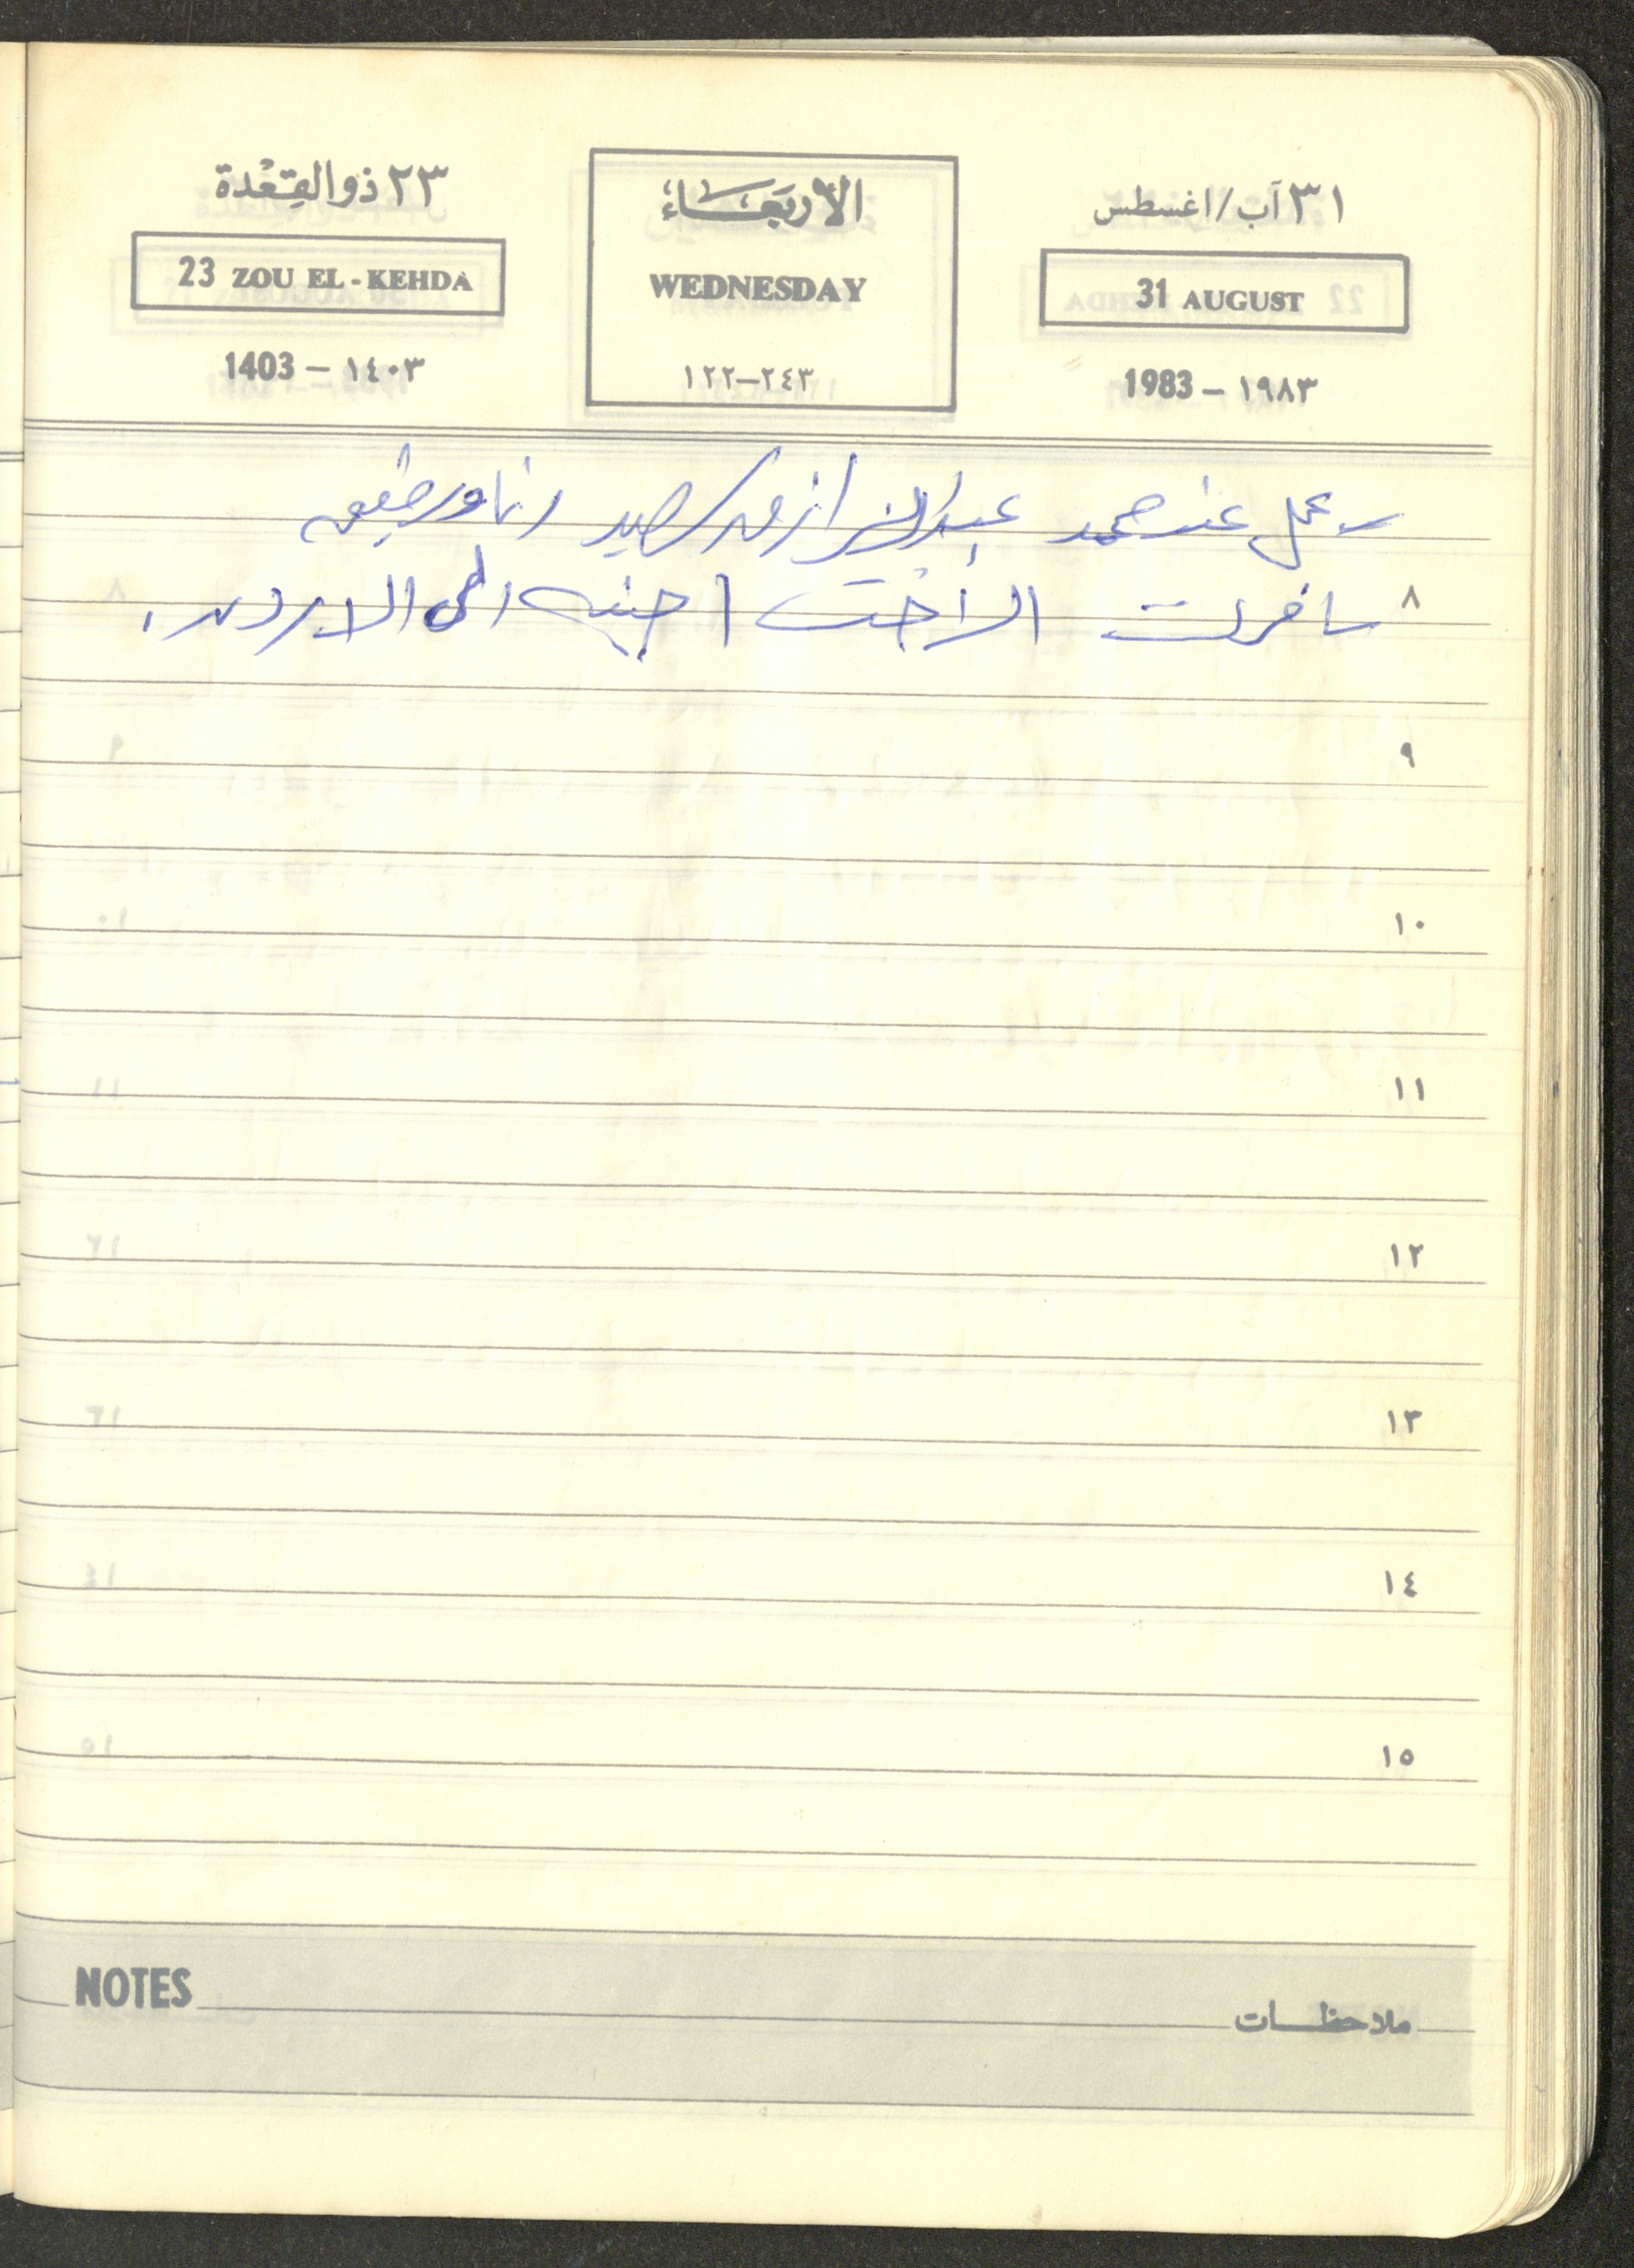 ٣١ آب/اغسطس
31 AUGUST
1983 – ١٩٨٣
الأربعاء
WEDNESDAY
٢٤٣–١٢٢
٢٣ ذو القِعْدة
23 ZOU EL-KEHDA
1403 – ١٤٠٣
عمل عند محمد
٨ سافرت الأخت الى الاردن.
٩
١٠
١١
١٢
١٣
١٤
١٥
NOTES ملاحظات